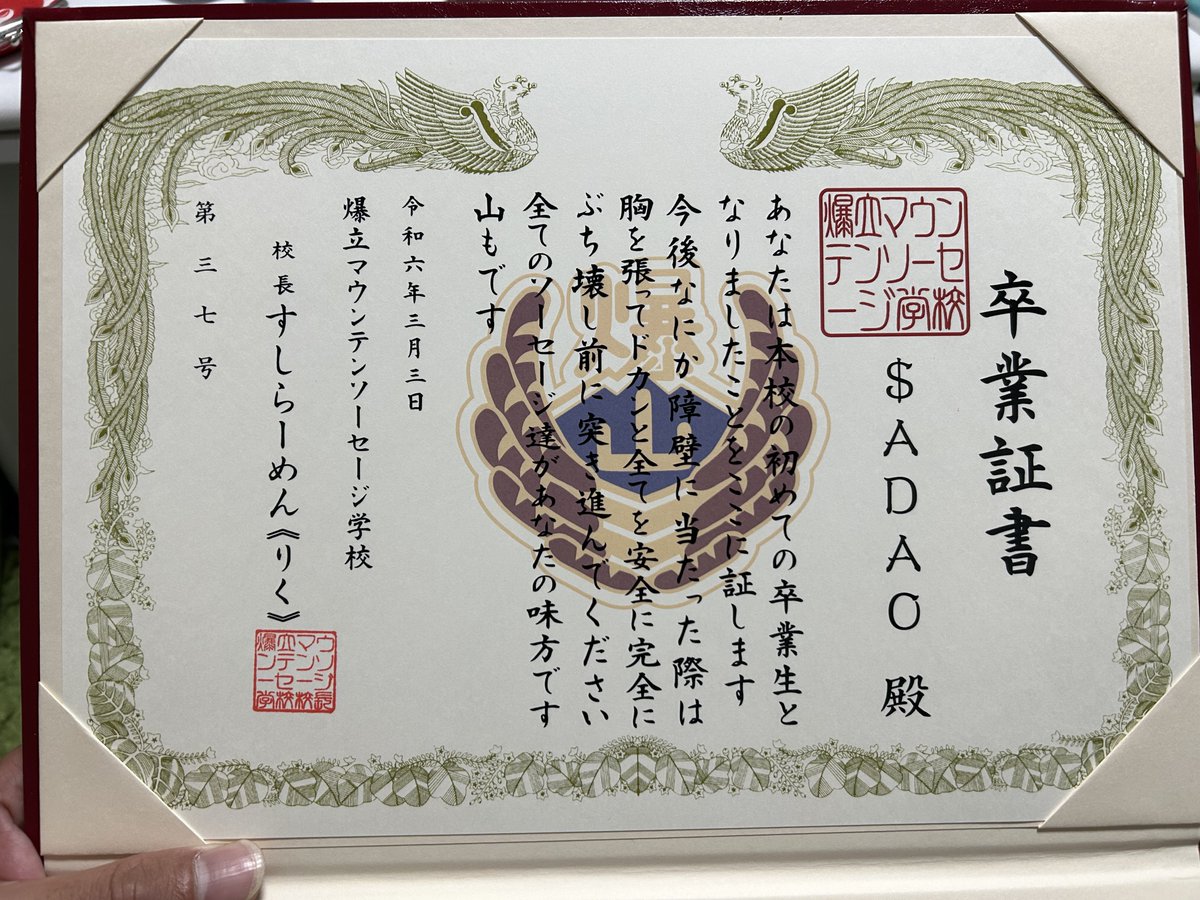 卒業証書
爆立マウンテンソーセージ学校
$ADAO 殿
あなたは本校の初めての卒業生と
なりましたことをここに証します
今後なにか障壁に当たった際は
胸を張ってドカンと全てを安全に完全に
ぶち壊し前に突き進んでください
全てのソーセージ達があなたの味方です
山もです
令和六年三月三日
爆立マウンテンソーセージ学校
校長すしらーめん《りく》
爆立マウンテンソーセージ学校校長
第三七号
爆
山